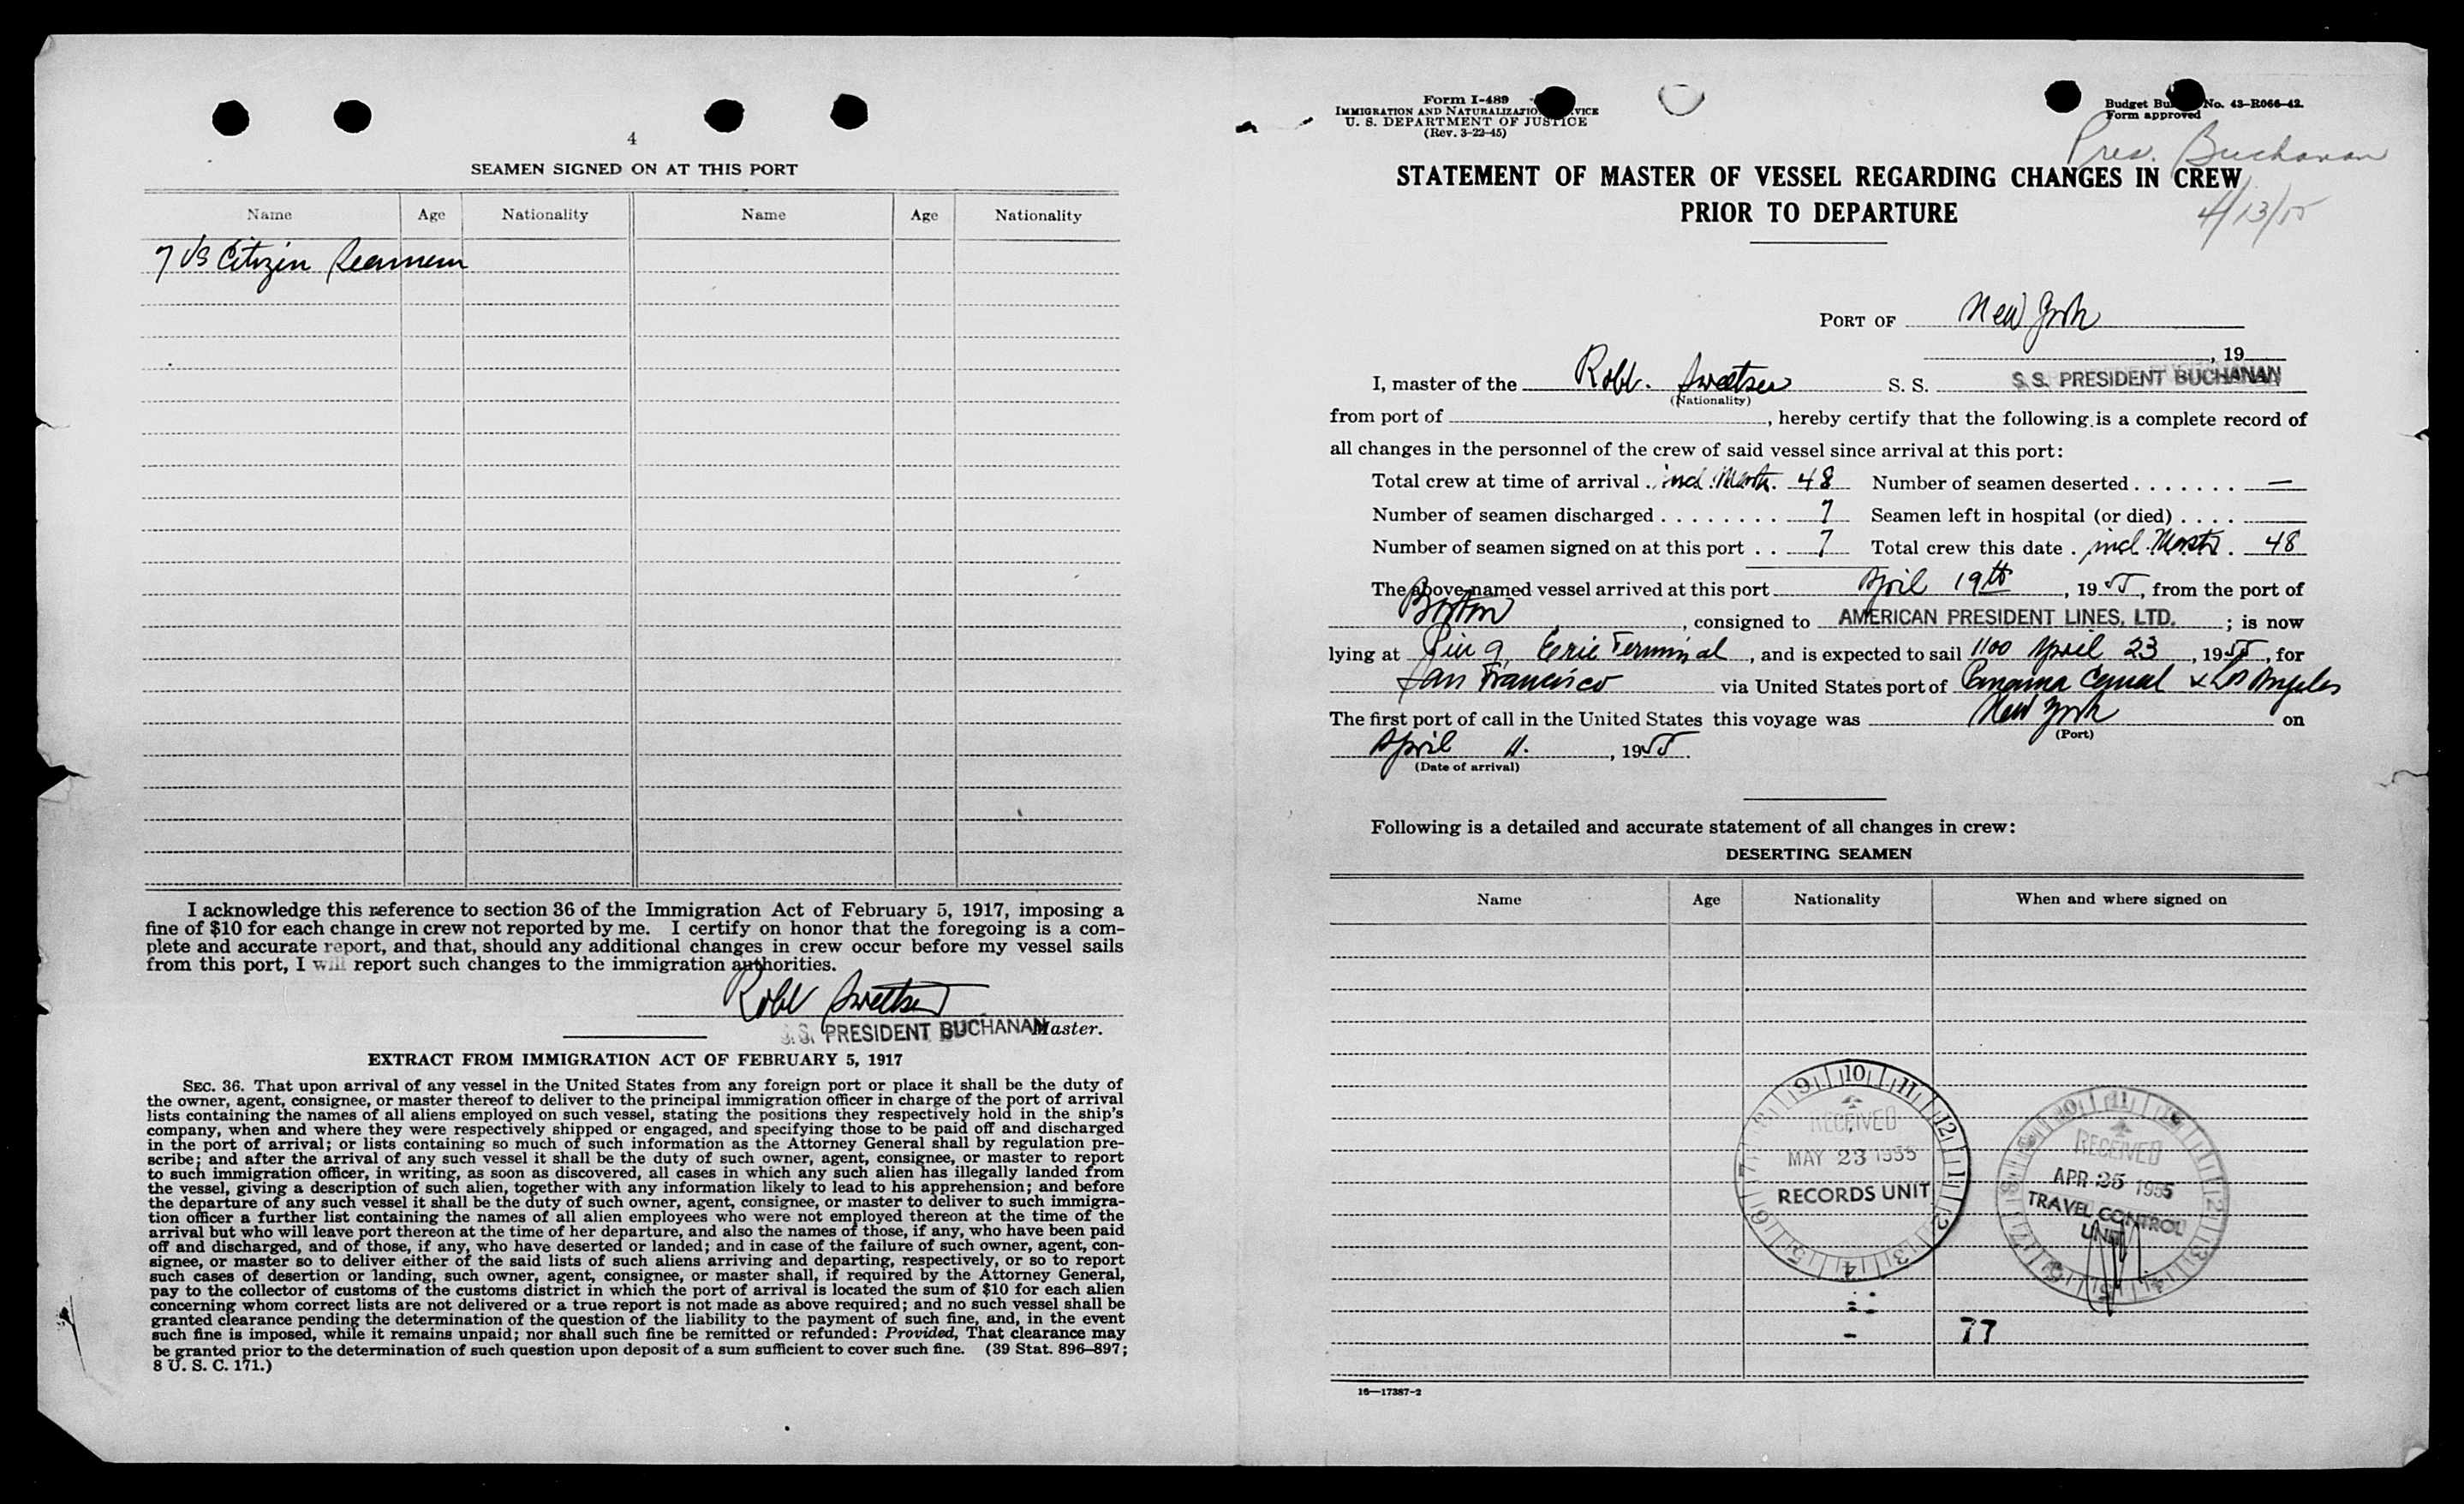 4
SEAMEN SIGNED ON AT THIS PORT
Name Age Nationality Name Age Nationality
7 US Citizen Seamen
I acknowledge this reference to section 36 of the Immigration Act of February 5, 1917, imposing a
fine of $10 for each change in crew not reported by me. I certify on honor that the foregoing is a com-
plete and accurate report, and that, should any additional changes in crew occur before my vessel sails
from this port, I will report such changes to the immigration authorities.
Robt Sweetser
S.S. PRESIDENT BUCHANAN Master.
EXTRACT FROM IMMIGRATION ACT OF FEBRUARY 5, 1917
SEC. 36. That upon arrival of any vessel in the United States from any foreign port or place it shall be the duty of
the owner, agent, consignee, or master thereof to deliver to the principal immigration officer in charge of the port of arrival
lists containing the names of all aliens employed on such vessel, stating the positions they respectively hold in the ship's
company, when and where they were respectively shipped or engaged, and specifying those to be paid off and discharged
in the port of arrival; or lists containing so much of such information as the Attorney General shall by regulation pre-
scribe; and after the arrival of any such vessel it shall be the duty of such owner, agent, consignee, or master to report
to such immigration officer, in writing, as soon as discovered, all cases in which any such alien has illegally landed from
the vessel, giving a description of such alien, together with any information likely to lead to his apprehension; and before
the departure of any such vessel it shall be the duty of such owner, agent, consignee, or master to deliver to such immigra-
tion officer a further list containing the names of all alien employees who were not employed thereon at the time of the
arrival but who will leave port thereon at the time of her departure, and also the names of those, if any, who have been paid
off and discharged, and of those, if any, who have deserted or landed; and in case of the failure of such owner, agent, con-
signee, or master so to deliver either of the said lists of such aliens arriving and departing, respectively, or so to report
such cases of desertion or landing, such owner, agent, consignee, or master shall, if required by the Attorney General,
pay to the collector of customs of the customs district in which the port of arrival is located the sum of $10 for each alien
concerning whom correct lists are not delivered or a true report is not made as above required; and no such vessel shall be
granted clearance pending the determination of the question of the liability to the payment of such fine, and, in the event
such fine is imposed, while it remains unpaid; nor shall such fine be remitted or refunded: Provided, That clearance may
be granted prior to the determination of such question upon deposit of a sum sufficient to cover such fine. (39 Stat. 896–897;
8 U. S. C. 171.)
Form I-489
IMMIGRATION AND NATURALIZATION SERVICE
U. S. DEPARTMENT OF JUSTICE
(Rev. 3-22-45)
Budget Bureau No. 43-R066-42.
Form approved
Pres. Buchanan
4/13/55
STATEMENT OF MASTER OF VESSEL REGARDING CHANGES IN CREW
PRIOR TO DEPARTURE
PORT OF New York
, 19
I, master of the Robt. Sweetser S. S. S.S. PRESIDENT BUCHANAN
(Nationality)
from port of , hereby certify that the following is a complete record of
all changes in the personnel of the crew of said vessel since arrival at this port:
Total crew at time of arrival incl. Mastr. 48 Number of seamen deserted . . . . . . . —
Number of seamen discharged . . . . . . . . 7 Seamen left in hospital (or died) . . . .
Number of seamen signed on at this port . . 7 Total crew this date . incl. Mastr. 48
The above-named vessel arrived at this port April 19th, 1955, from the port of
Boston, consigned to AMERICAN PRESIDENT LINES, LTD. ; is now
lying at Pier 9 Erie Terminal, and is expected to sail 1100 April 23, 1955, for
San Francisco via United States port of Panama Canal & Los Angeles
The first port of call in the United States this voyage was New York on
(Port)
April 11., 1955.
(Date of arrival)
Following is a detailed and accurate statement of all changes in crew:
DESERTING SEAMEN
Name Age Nationality When and where signed on
9 10 11 12 1 2 3 4 5 6 7 8
RECEIVED
MAY 23 1955
RECORDS UNIT
RECEIVED
APR 25 1955
TRAVEL CONTROL
UNIT
77
16—17387-2